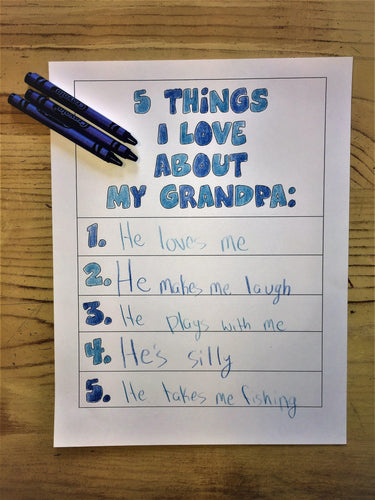 5 THiNGS
I LOVE
ABOUT
MY GRANDPA:
1. He loves me
2. He makes me laugh
3. He plays with me
4. He's silly
5. He takes me fishing